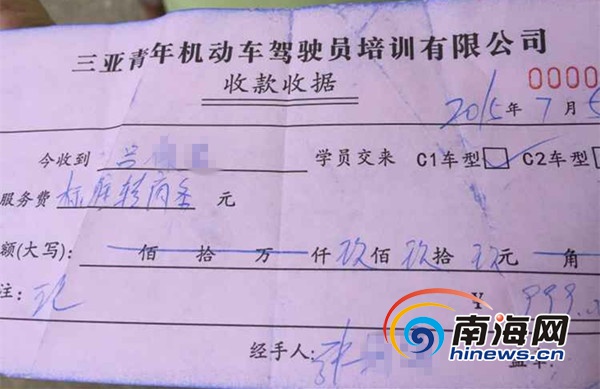 三亚青年机动车驾驶员培训有限公司
收款收据
0000
2015年7月5
今收到 吕 学员交来 C1车型□ C2车型
服务费 标准转商务 元
额(大写): 佰拾万仟玖佰玖拾玖元 角
注: 现 ¥ 999.
经手人: 张 盖章:
南海网
hinews.cn